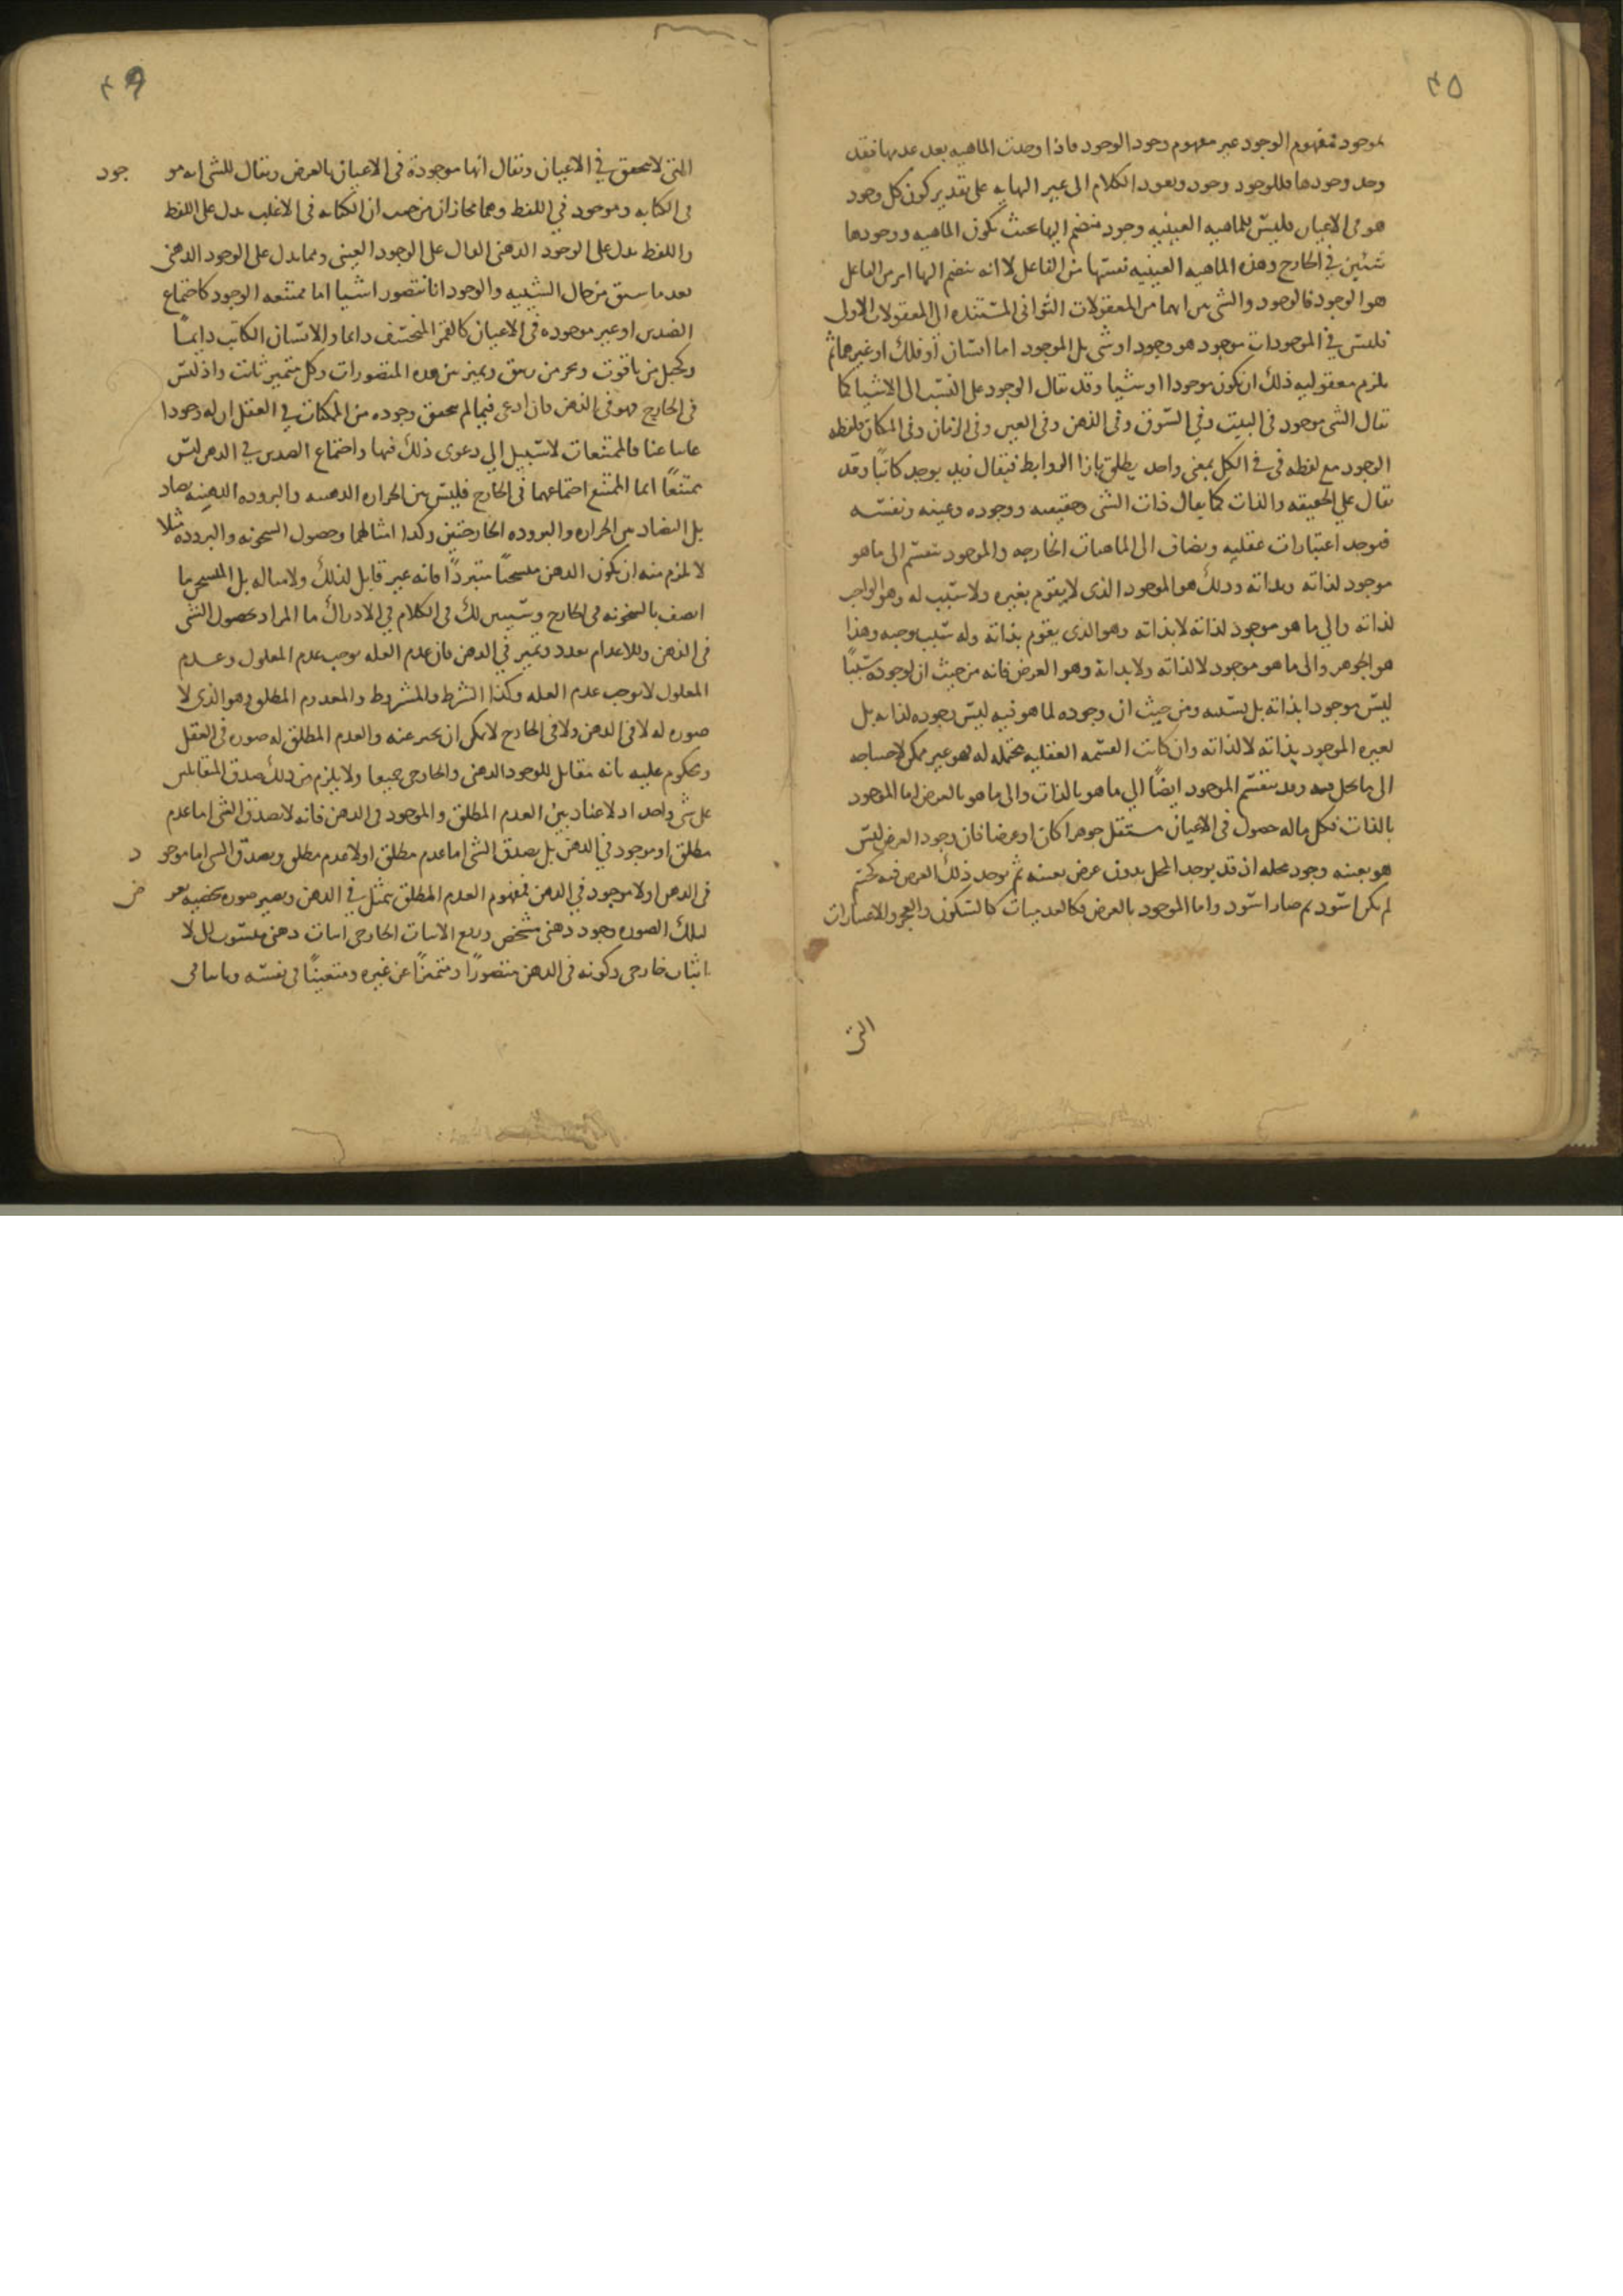 ٤٥
بموجود فمفهوم الوجود غير مفهوم وجود الوجود فاذا وجدت الماهيه بعد عدمها فقد
وجد وجودها فللوجود وجود ويعود الكلام الى غير النهايه على تقدير كون كل وجود
هو فى الاعيان فليس للماهيه العينيه وجود منضم اليها بحيث تكون الماهيه ووجودها
شئين في الخارج وهذه الماهيه العينيه نفسها من الفاعل لا انه ينضم اليها امر من الفاعل
هو الوجود فالوجود والشى من المعقولات الثوانى المستنده الى المعقولات الاول
فليس في الموجودات موجود هو وجود او شى بل الموجود اما انسان أو فلك او غيرها ثم
يلزم معقوليه ذلك ان تكون موجودا او شيا وقد يقال الوجود على النسب الى الاشيا كما
يقال الشى موجود فى البيت وفي السوق وفى الذهن وفى العين وفى الزمان وفى المكان فلفظه
الوجود مع لفظه فى فى الكل بمعنى واحد يطلق بازا الروابط فيقال زيد يوجد كاتبًا وقد
يقال على الحقيقه والذات كما يقال ذات الشى وحقيقته ووجوده وعينه ونفسه
فتوجد اعتبارات عقليه ويضاف الى الماهيات الخارجه والموجود ينقسم الى ما هو
موجود لذاته وبذاته وذلك هو الموجود الذى لا يتقوم بغيره ولا سبب له وهو الواجب
لذاته والى ما هو موجود لذاته لا بذاته وهو الذى يقوم بذاته وله سبب يوجبه وهذا
هو الجوهر والى ما هو موجود لا لذاته ولا بذاته وهو العرض فانه من حيث ان لوجوده سببًا
ليس موجودا بذاته بل بسببه ومن حيث ان وجوده لما هو فيه ليس وجوده لذاته بل
لغيره الموجود بذاته لا لذاته وان كانت القسمه العقليه محتمله له فهو غير ممكن لاحتياجه
الى ما يحل فيه وقد ينقسم الموجود ايضًا الى ما هو بالذات والى ما هو بالعرض اما الموجود
بالذات فكل ما له حصول فى الاعيان مستقل جوهرا كان او عرضا فان وجود العرض ليس
هو بعينه وجود محله اذ قد يوجد المحل بدون عرض بعينه ثم يوجد ذلك العرض فيه كجسم
لم يكن اسود ثم صار اسود واما الموجود بالعرض فكالعدميات كالسكون والعجز والاعتبارات
التى
٤٦
التى لا تتحقق في الاعيان ويقال انها موجودة فى الاعيان بالعرض ويقال للشى انه موجود
فى الكتابه وموجود في اللفظ وهما مجازان من حيث ان الكتابه فى الاغلب تدل على اللفظ
واللفظ يدل على الوجود الذهنى الدال على الوجود العينى ومما يدل على الوجود الذهنى
بعد ما سبق من حال الشيئيه والوجود انا نتصور اشيا اما ممتنعه الوجود كاجتماع
الضدين او غير موجوده فى الاعيان كالقمر المنخسف دايما والانسان الكاتب دايماً
وكجبل من ياقوت وبحر من زيبق ونميز بين هذه المتصورات وكل متميز ثابت واذ ليس
فى الخارج فهو فى الذهن فان ادعى فيما لم يتحقق وجوده من الممكنات في العقل ان له وجودا
غايبا عنا فالممتنعات لا سبيل الى دعوى ذلك فيها واجتماع الضدين في الذهن ليس
ممتنعًا انما الممتنع اجتماعهما فى الخارج فليس بين الحراره الذهنيه والبروده الذهنيه تضاد
بل التضاد بين الحراره والبروده الخارجتين وكذا امثالهما وحصول السخونه والبروده مثلا
لا يلزم منه ان يكون الذهن متسخنًا متبردًا فانه غير قابل لذلك بل المتسخن ما
اتصف بالسخونه فى الخارج وسيبين لك فى الكلام في الادراك ما المراد بحصول الشى
فى الذهن وللاعدام تعدد وتميز في الذهن فان عدم العله يوجب عدم المعلول وعدم
المعلول لا يوجب عدم العله وكذا الشرط والمشروط والمعدوم المطلق وهو الذى لا
صوره له لا فى الذهن ولا فى الخارج لا يمكن ان يخبر عنه والعدم المطلق له صوره فى العقل
ومحكوم عليه بانه مقابل للوجود الذهنى والخارجى جميعا ولا يلزم من ذلك صدق المتقابلين
على شى واحد اذ لا عناد بين العدم المطلق والموجود فى الذهن فانه لا يصدق الشى اما عدم
مطلق او موجود في الذهن بل يصدق الشى اما عدم مطلق او لا عدم مطلق ويصدق الشى اما موجود
فى الذهن او لا موجود في الذهن فمفهوم العدم المطلق يتمثل في الذهن ويصير صوره شخصيه يعرض
لتلك الصوره وجود ذهنى مشخص ورفع الاثبات الخارجى اثبات ذهنى منسوب الى لا
اثبات خارجى وكونه فى الذهن متصورًا ومتميزًا عن غيره ومتعينًا فى نفسه